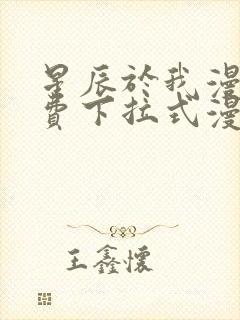 星辰於我漫
費下拉式漫
王鑫懷